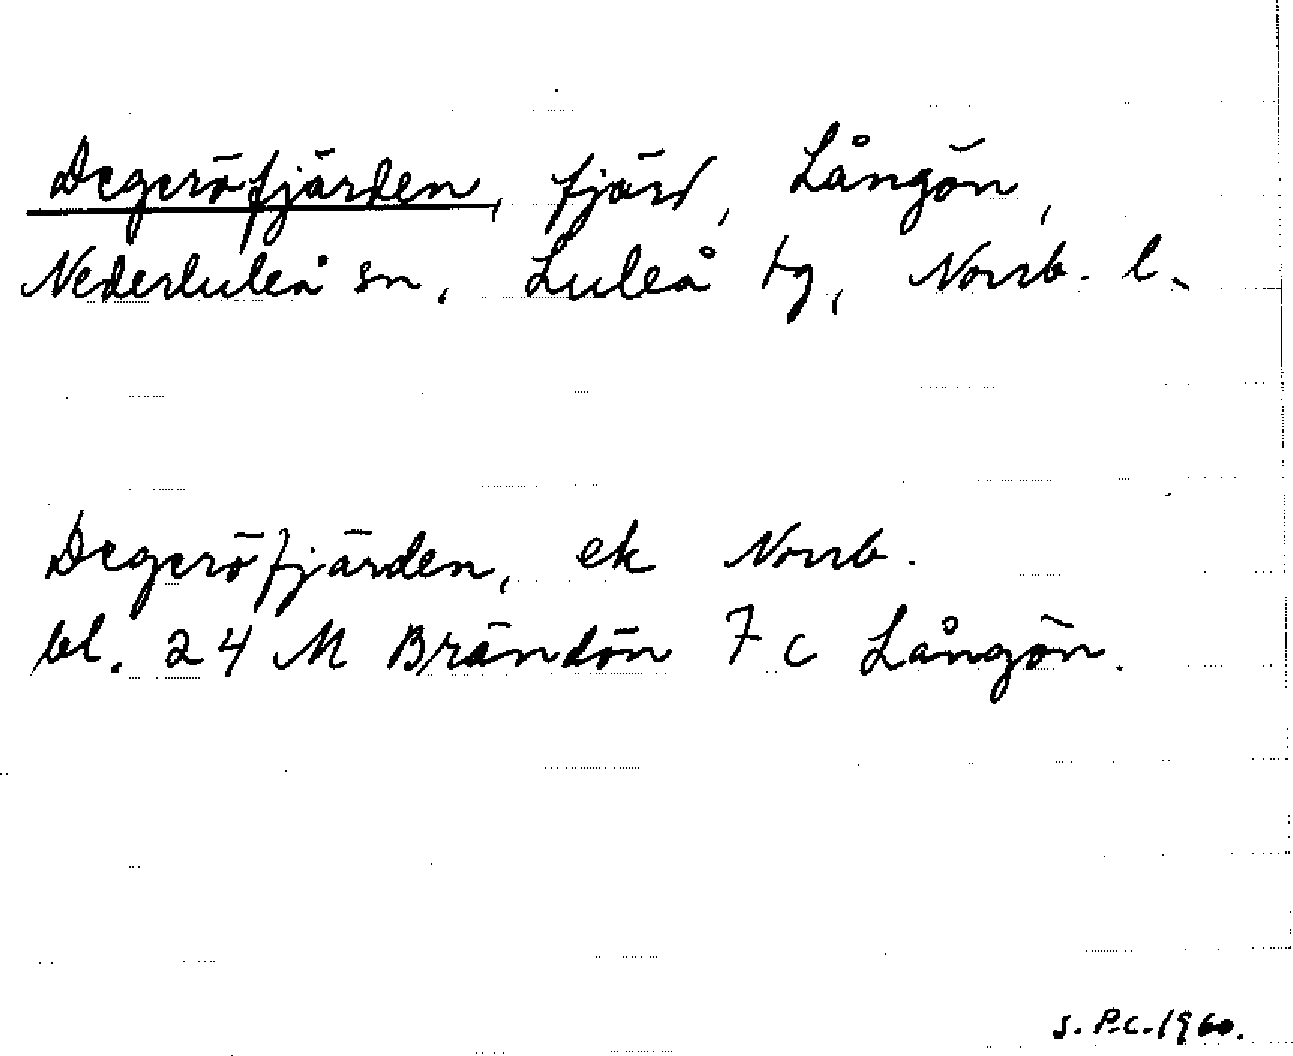 Degeröfjärden, fjärd, Långön,
Nederluleå sn, Luleå tg, Norrb. l.
Degeröfjärden, ek Norrb.
bl. 24 M Brändön 7 c Långön.
S. P.C. 1960.